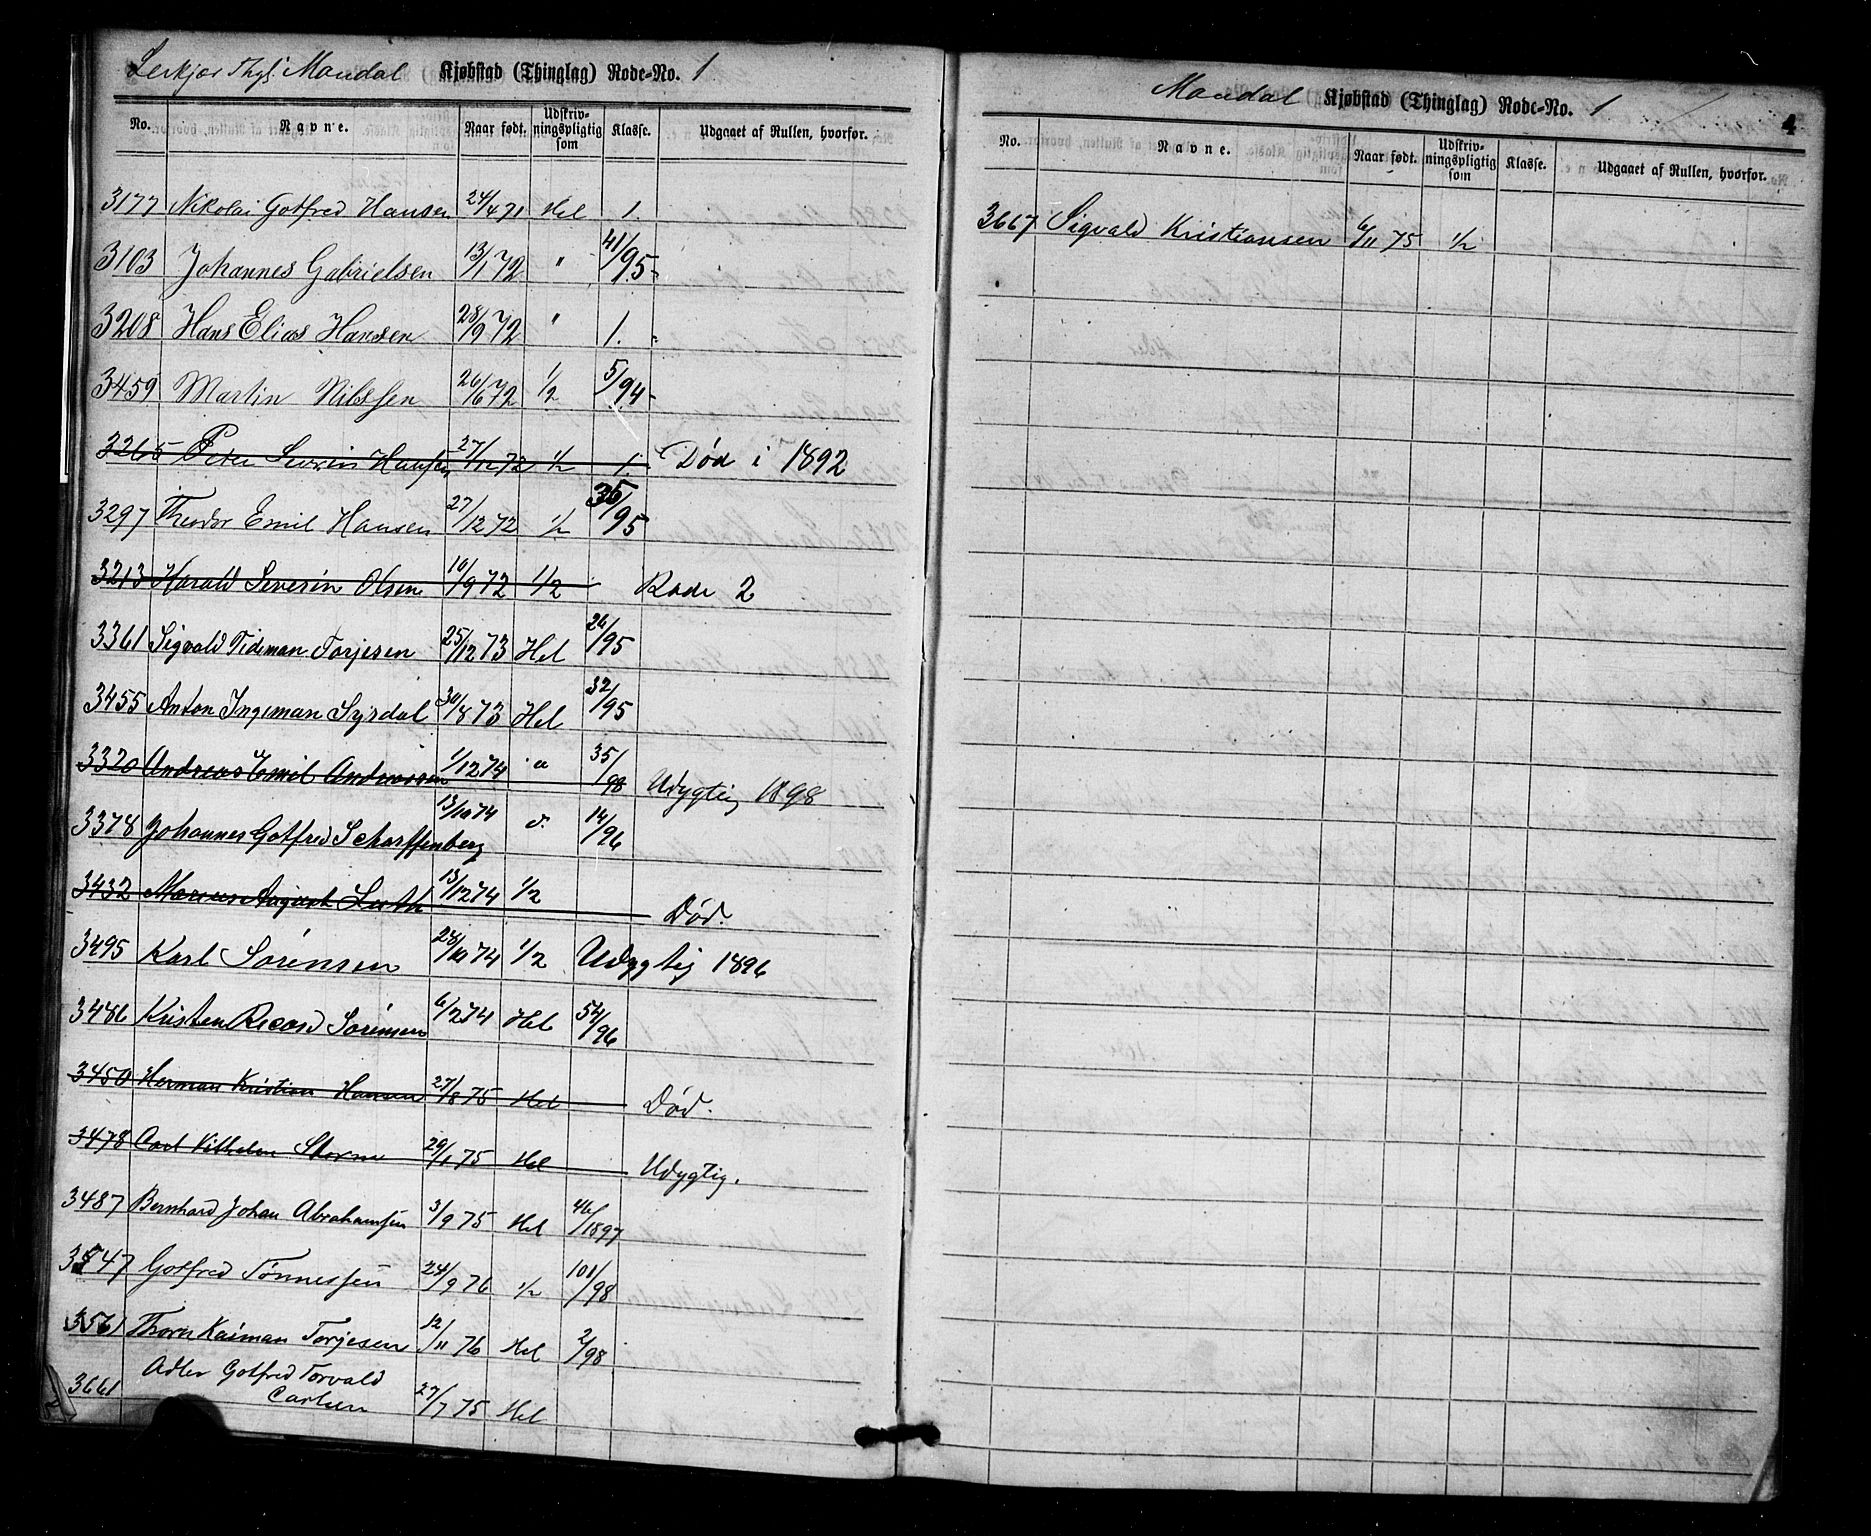 Mandal Kjøbstad (Thinglag) Rode-No. 1
No. Navne. Naar født. Udskriv-ningspligtig som Klasse. Udgaaet af Rullen, hvorfor.
3177 Nikolai Gotfred Hansen 24/4 71 Hel 1.
3103 Johannes Gabrielsen 13/1 72 " 41/95
3208 Hans Elias Hansen 28/9 72 " 1.
3459 Martin Nilssen 26/6 72 1/2 5/94
3265 Peter Severin Hansen 27/12 72 1/2 1. Død i 1892
3297 Theodor Emil Hansen 27/12 72 1/2 35/95
3213 Harald Severin Olsen 10/9 72 1/2 Rode 2
3361 Sigvald Tideman Torjesen 25/12 73 Hel 26/95
3455 Anton Ingeman Syrdal 30/8 73 Hel 32/95
3320 Andreas Emil Andreassen 1/12 74 " 35/98 Udygtig 1898
3378 Johannes Gotfred Scharffenberg 13/10 74 14/96
3432 Marius August Luth 13/12 74 1/2 Død.
3495 Karl Sørensen 28/10 74 1/2 Udygtig 1896
3486 Kristen Recard Sørensen 6/2 74 Hel 54/96
3450 Herman Kristian Hansen 27/8 75 Hel Død.
3478 Carl Vilhelm Storm 29/1 75 Hel Udygtig.
3487 Bernhard Johan Abrahamsen 3/9 75 Hel 46/1897
3547 Gotfred Tønnessen 24/9 76 1/2 101/98
3561 Thorv Kaiman Torjesen 12/11 76 Hel 2/98
3661 Adler Gotfred Torvald
Carlsen 27/7 75 Hel
Mandal Kjøbstad (Thinglag) Rode-No. 1
4
No. Navne. Naar født. Udskriv-ningspligtig som Klasse. Udgaaet af Rullen, hvorfor.
3667 Sigvald Kristiansen 6/11 75 1/2